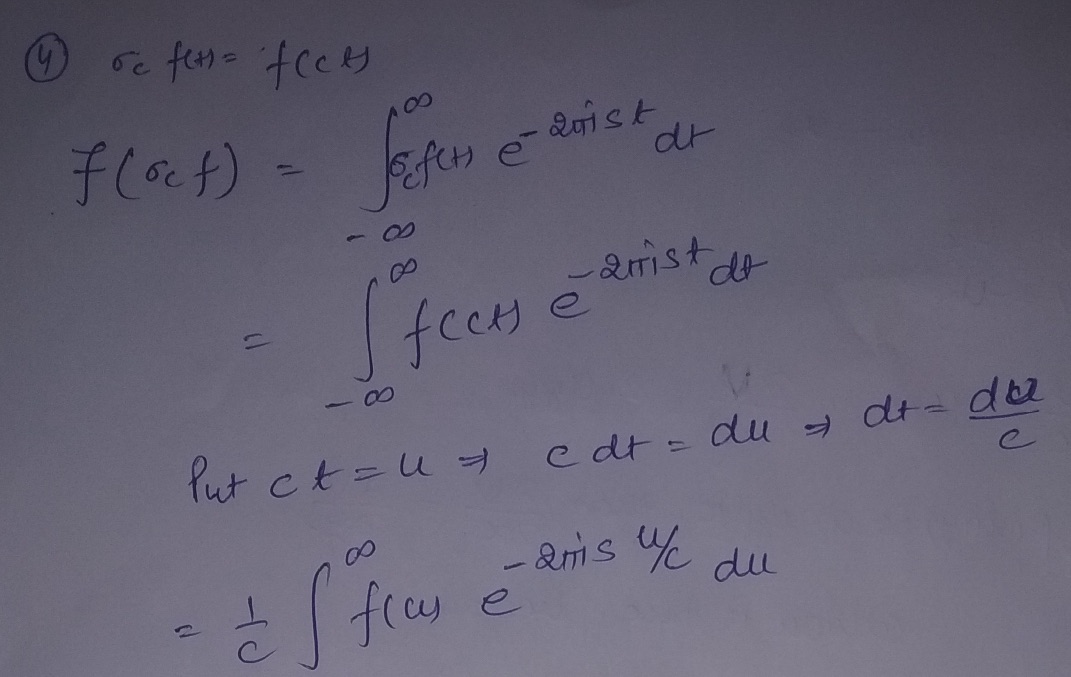 ④ σc f(t) = f(ct)
F(σc f) = ∫_{-∞}^{∞} σc f(t) e^{-2πist} dt
= ∫_{-∞}^{∞} f(ct) e^{-2πist} dt
Put ct = u ⇒ c dt = du ⇒ dt = du/c
= 1/c ∫^{∞} f(u) e^{-2πis u/c} du